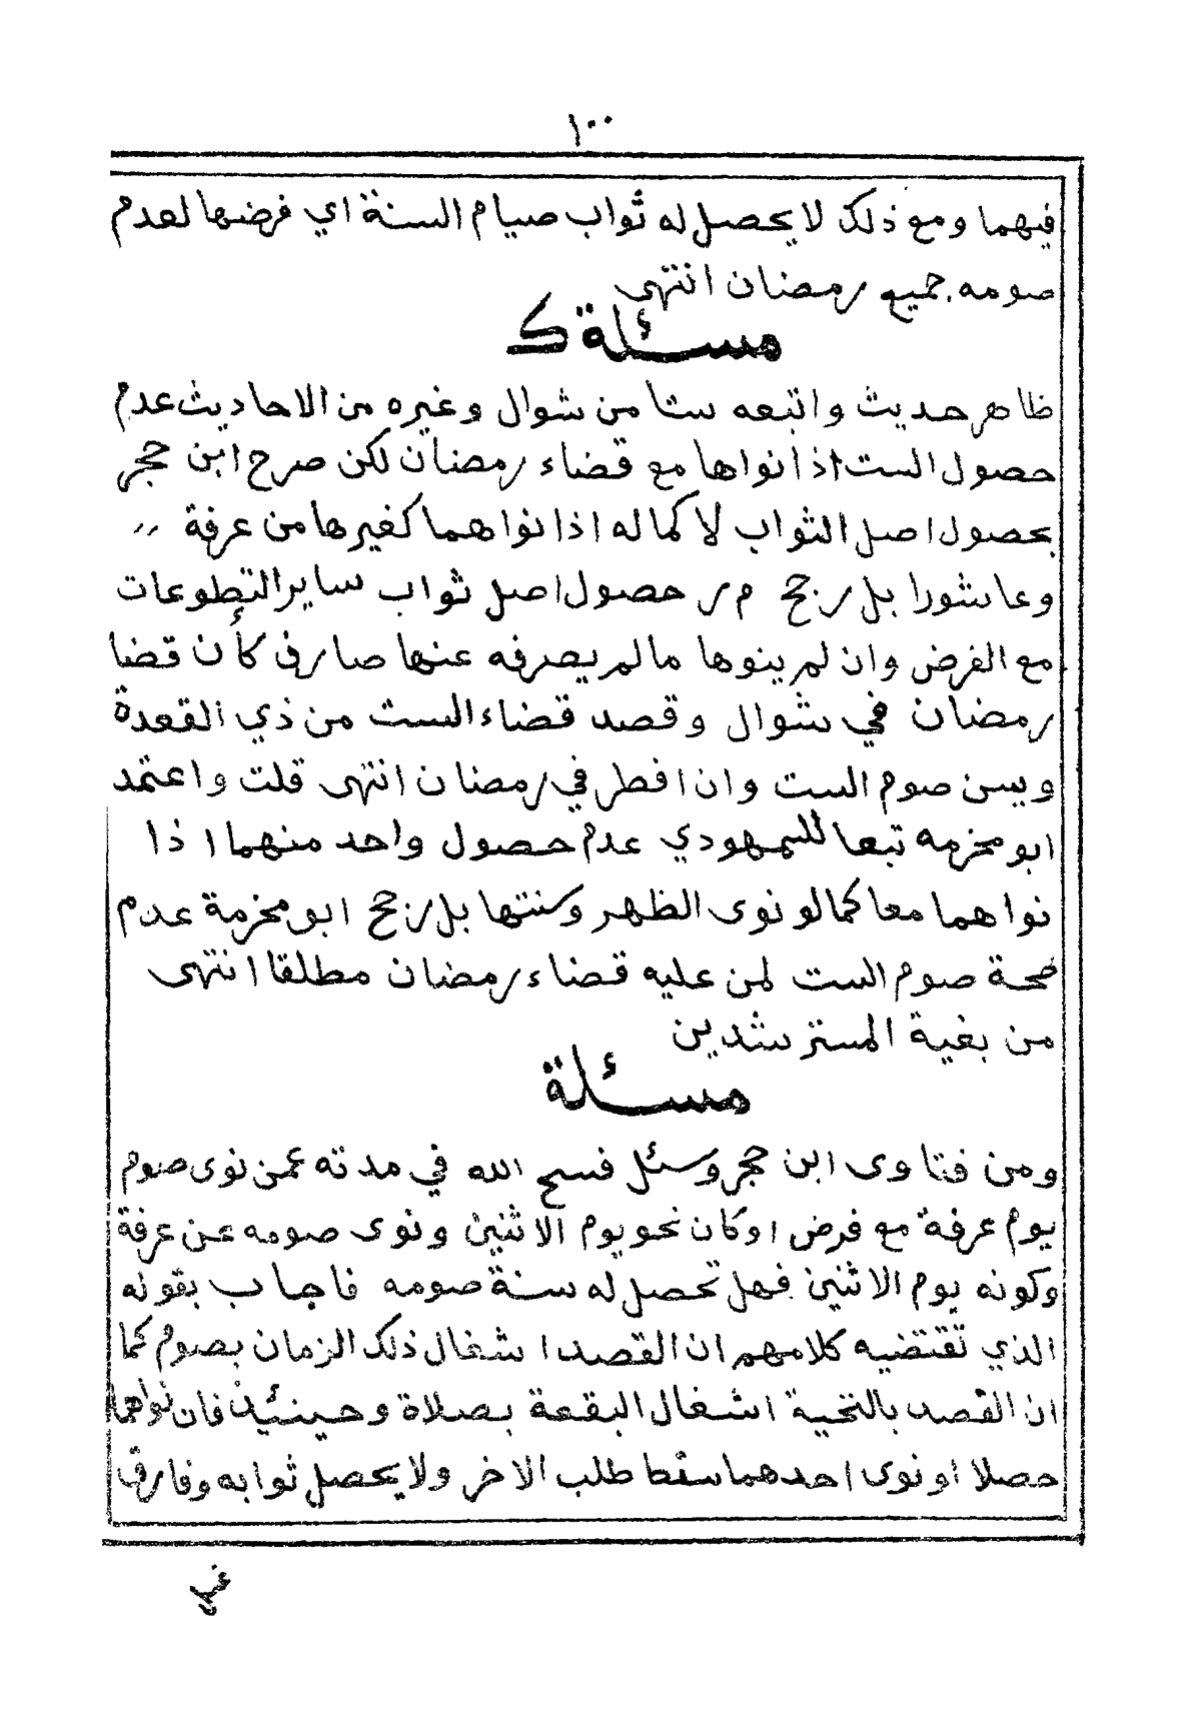 ١٠٠
فيهما ومع ذلك لا يحصل له ثواب صيام السنة اي فرضها لعدم
صومه جميع رمضان انتهى
مسئلة ك
ظاهر حديث واتبعه ستا من شوال وغيره من الاحاديث عدم
حصول الست اذا نواها مع قضاء رمضان لكن صرح ابن حجر
بحصول اصل الثواب لا كماله اذا نواهما كغيرها من عرفة ،،
وعاشورا بل رجح م ر حصول اصل ثواب ساير التطوعات
مع الفرض وان لم ينوها مالم يصرفه عنها صارف كأن قضا
رمضان في شوال وقصد قضاء الست من ذي القعدة
ويسن صوم الست وان افطر في رمضان انتهى قلت واعتمد
ابو مخرمه تبعا للسمهودي عدم حصول واحد منهما اذا
نواهما معا كما لو نوى الظهر وسنتها بل رجح ابو مخرمة عدم
صحة صوم الست لمن عليه قضاء رمضان مطلقا انتهى
من بغية المسترشدين
مسئلة
ومن فتاوى ابن حجر وسئل فسح الله في مدته عمن نوى صوم
يوم عرفة مع فرض او كان نحو يوم الاثنين ونوى صومه عن عرفة
وكونه يوم الاثنين فهل تحصل له سنة صومه فاجاب بقوله
الذي تقتضيه كلامهم ان القصد اشغال ذلك الزمان بصوم كما
ان القصد بالتحية اشغال البقعة بصلاة وحينئيذ فان نواهما
حصلا او نوى احدهما سقط طلب الاخر ولا يحصل ثوابه وفارق